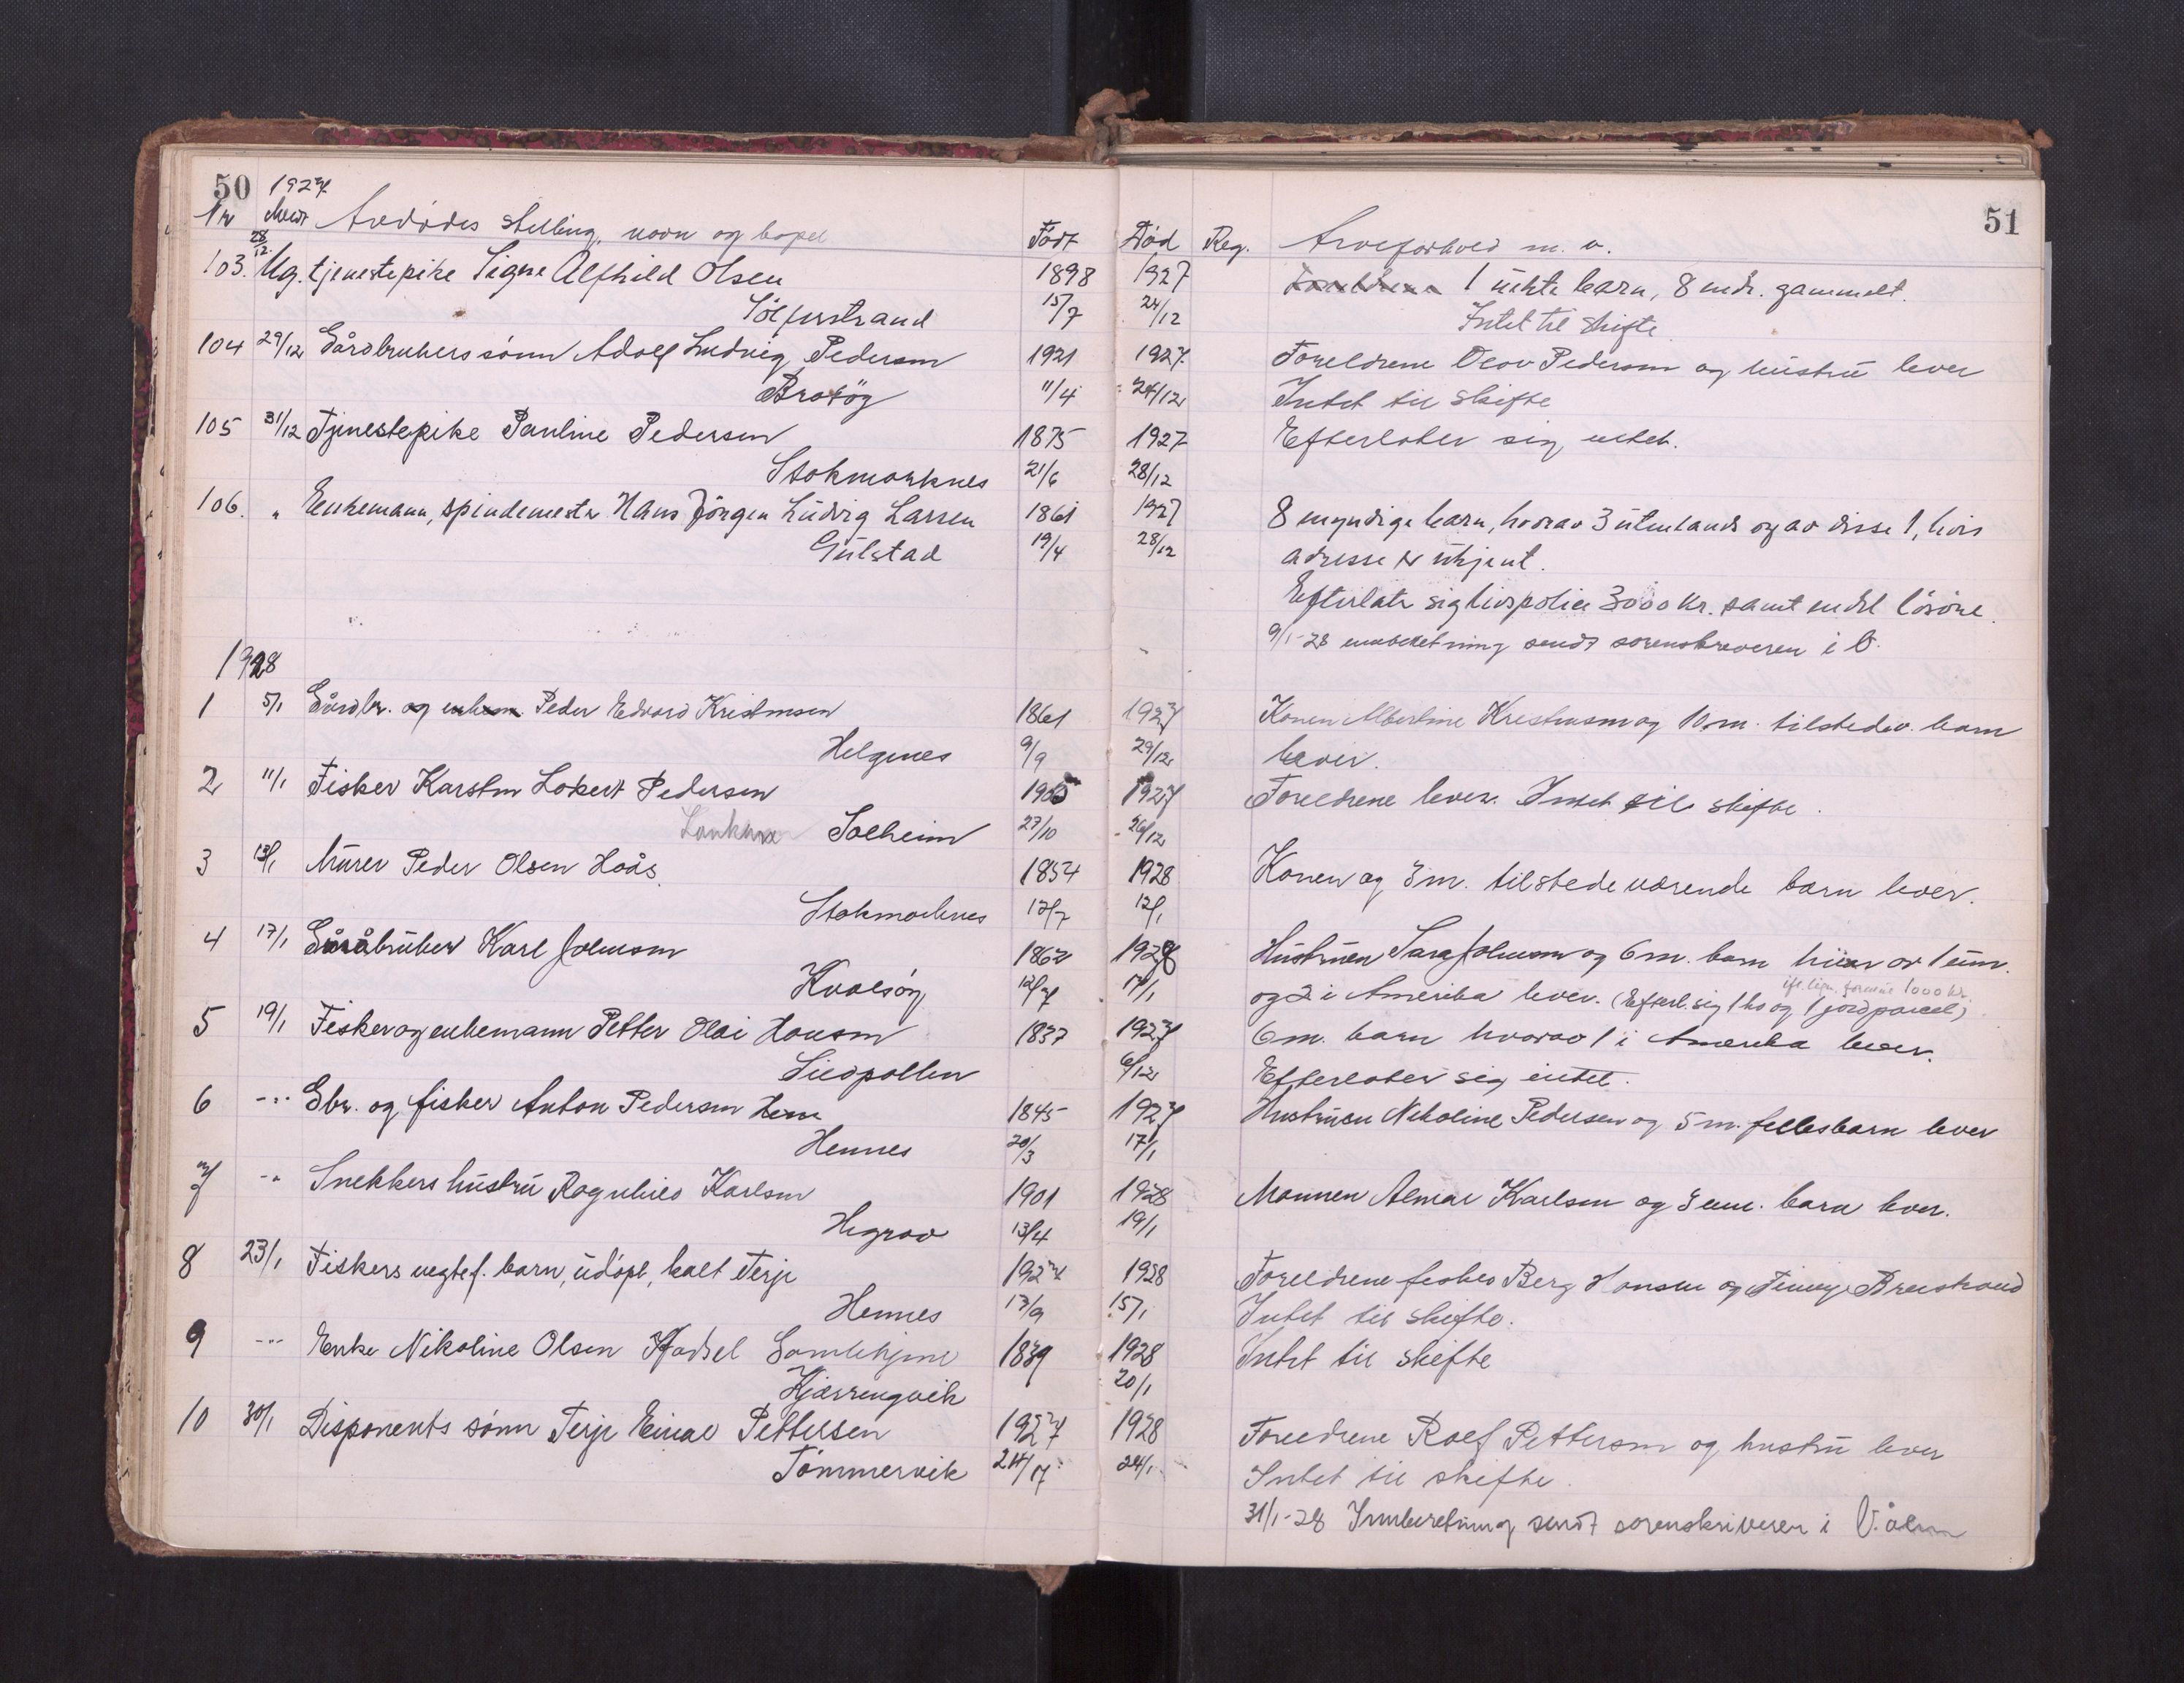 50 1927.
Nr Meldt Avdødes stilling, navn og bopel Født Død Reg. Arveforhold m. v. 51
103. 28/12. Ug. tjenestepike Signe Alfhild Olsen 1898 1927 Foreldrene 1 uekte barn, 8 mdr. gammelt.
15/7 24/12 Intet til skifte
104 29/12 Gårdbrukers sønn Adolf Ludvig Pedersen 1921 1927. Foreldrene Olov Pedersen og hustru lever
11/4 24/12 Intet til skifte
105 31/12 Tjenestepike Pauline Pedersen 1875 1927 Efterlater sig intet.
Stokmarknes 21/6 28/12
106. " Enkemann, spindemester Hans Jörgen Ludvig Larsen 1861 1927 8 myndige barn, hvorav 3 utenlands og av disse 1, hvis
Gulstad 19/4 28/12 adresse er ukjent.
Efterlate sig livspolice 3000 kr. samt endel lösöre.
9/1-28 innberetning sendt sorenskriveren i V.
1928
1 5/1 Gårdbr. og enkem. Peder Edvard Kristensen 1861 1927 Konen Albertine Kristensen og 10 m. tilstedev. barn
Helgenes 9/9 29/12 lever.
2 11/1 Fisker Karsten Lokert Pedersen 1905 1927 Foreldrene lever. Intet til skifte.
Solheim 27/10 26/12
3 13/1 Murer Peder Olsen Hoås 1854 1928 Konen og 3 m. tilstedeværende barn lever.
Stokmarknes 12/7 12/1
4 17/1 Gårdbruker Karl Johnsen 1862 1928 Hustruen Sara Johnsen og 6 m. barn hvor av 1 um.
Kvalsöy 12/7 17/1 og 2 i Amerika lever. (Efterl. sig 1 ko og 1 jordparcel)
ifl. lign. formue 1000 kr.
5 19/1 Fisker og enkemann Petter Olai Hansen 1837 1927 6 m. barn hvorav 1 i Amerika lever.
Sildpollen 6/12 Efterlater sig intet.
6 -"- Gbr. og fisker Anton Pedersen Henn 1845 1927 Hustruen Nikoline Pedersen og 5 m. fellesbarn lever
Hennes 20/3 17/1
7 -"- Snekkers hustru Ragnhild Karlsen 1901 1928 Mannen Almar Karlsen og 3 um. barn lever.
13/4 19/1
8 23/1 Fiskers uegtef. barn, udöpt, kalt Terje 1927 1928 Foreldrene fisker Berg Hansen og Breistrand
Hennes 17/9 15/1 Intet til skifte.
9 -"- Enke Nikoline Olsen Hadsel Gamlehjem 1839 1928 Intet til skifte
Kjærringvik 20/1
10 30/1 Disponents sønn Terje Einar Pettersen 1927 1928 Foreldrene Rolf Pettersen og hustru lever
Tömmervik 24/1 Intet til skifte.
31/1-28 Innberetning sendt sorenskriveren i V.ålen